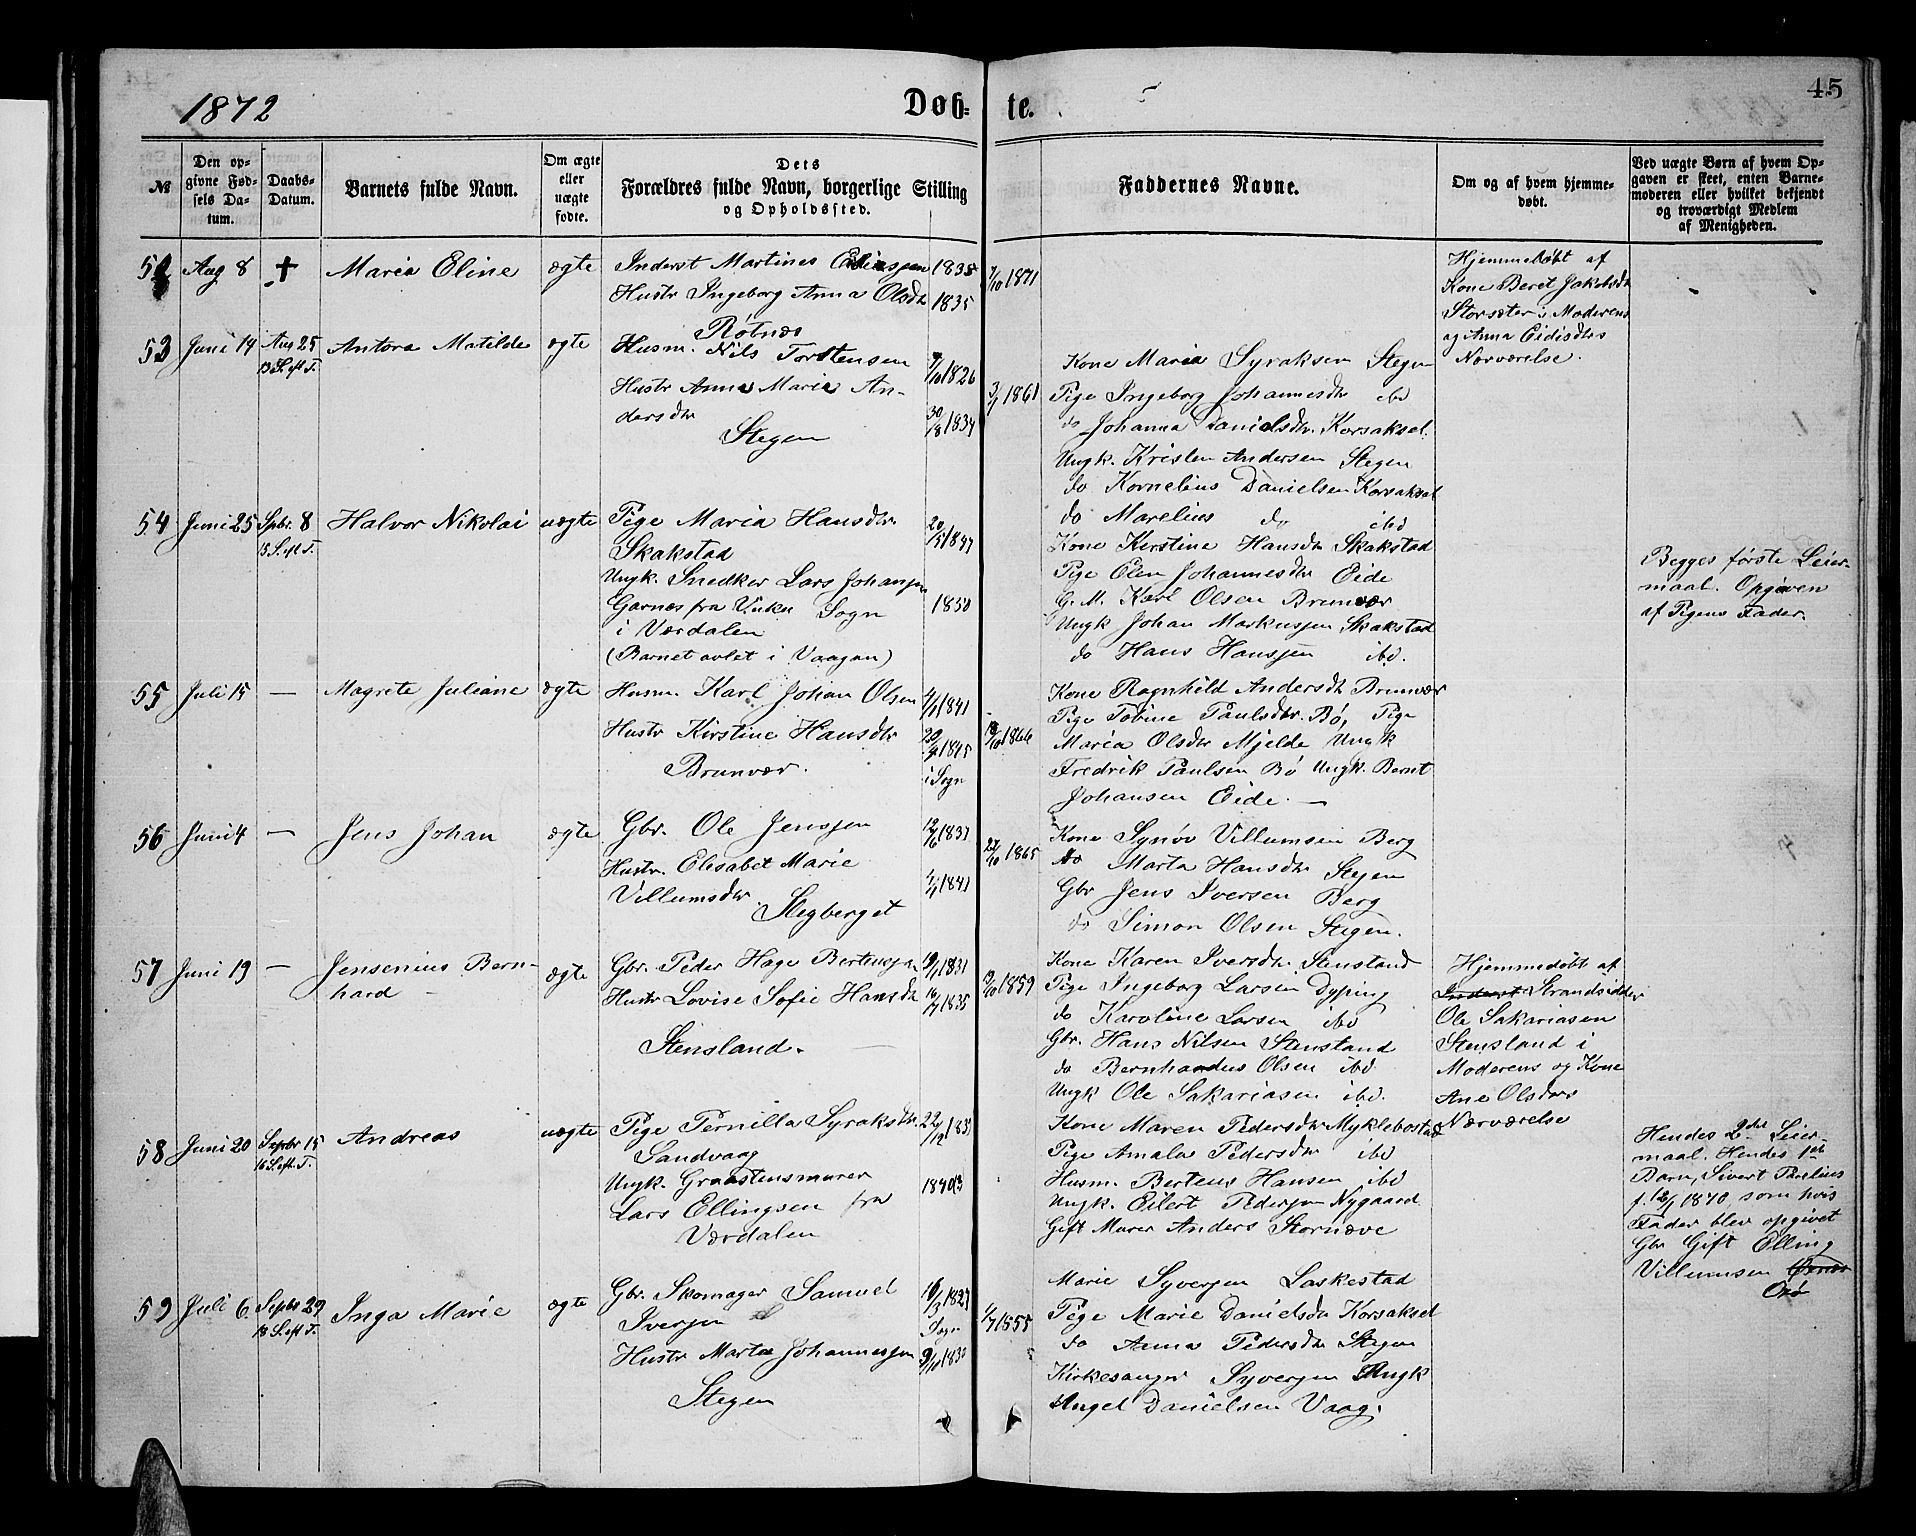 1872
Døb-
te.
45
№
Den op-
givne Fød-
sels Da-
tum.
Daabs-
Datum.
Barnets fulde Navn.
Om ægte
eller
uægte
fødte.
Dets
Forældres fulde Navn, borgerlige Stilling
og Opholdssted.
Faddernes Navne.
Om og af hvem hjemme-
døbt.
Ved uægte Børn af hvem Op-
gaven er skeet, enten Barne-
moderen eller hvilket bekjendt
og troværdigt Medlem
af Menigheden.
52 Aug 8 + Maria Eline ægte
Inderst Martines 1835
Hustr Ingeborg Anna Olsdtr 1835
Røtnæs
7/10 1871
Hjemmedøbt af
Kone Beret Jakobsdtr
Storsæter i Moderens
og Anna Eidisdtrs
Nærværelse.
53 Juni 14 Aug 25 Antora Matilde ægte
13 S. eft T.
Husm. Nils Torstensen 1826
Hustr Anna Maria An-
dersdtr
Stegen
3/7 1861
Kone Maria Syraksen Stegen
Pige Ingeborg Johannesdtr ibd
do Johanna Danielsdtr Korsaksel.
Ungk. Kristen Andersen Stegen
do Kornelius Danielsen Korsaksel
do Marelius do ibd
54 Juni 25 Spbr. 8 Halvor Nikolai uægte
15 S. eft T.
Pige Maria Hansdtr
Skakstad
Ungk. Snedker Lars Johansen
Garnæs fra Vuku Sogn 1850
i Værdalen
(Barnet avlet i Vaagan)
Kone Kirstine Hansdtr Skakstad
Pige Elen Johannesdtr Eide
G. M. Karl Olsen Brunvær
Ungk Johan Markussen Skakstad
do Hans Hanssen ibd.
Begges første Leier-
maal. Opgiven
af Pigens Fader.
55 Juli 15 — Magrete Juliane ægte
Husm. Karl Johan Olsen 1841
Hustr Kirstine Hansdtr 1845
Brunvær. i Sogn
1866
Kone Ragnhild Andersdtr Brunvær
Pige Tobine Paulsdtr. Bø, Pige
Maria Olsdtr Mjelde Ungk
Fredrik Paulsen Bø Ungk. Bernt
Johansen Eide. —
56 Juni 4 — Jens Johan ægte
Gbr. Ole Jenssen
Hustr. Elisabet Marie
Villumsdtr. 1841
Stegberget
22/10 1865
Kone Synøv Villumsen Berg
do Marta Hansdtr Stegen
Gbr Jens Iversen Berg
do Simon Olsen Stegen.
57 Juni 19 — Jensenius Bern- ægte
hard —
Gbr. Peder Hage Bertenssen 1831
Hustr Lovise Sofie Hansdtr 16/7 1835
Stensland.
1859
Kone Karen Iversdtr Stensland
Pige Ingeborg Larsen Dyping
do Karoline Larsen ibd
Gbr. Hans Nilsen Stensland
do Bernhardus Olsen ibd
Ungk Ole Sakariasen ibd.
Hjemmedøbt af
Inderst Strandsidder
Ole Sakariasen
Stensland i
Moderens og Kone
Ane Olsdtrs
Nærværelse
58 Juni 20 Septbr 15 Andreas uægte
16 S. eft. T.
Pige Pernilla Syraksdtr. 22/12
Sandvaag
Ungk. Graastensmurer
Lars Ellingsen fra
Værdalen
Kone Maren Pedersdtr Myklebostad
Pige Amala Pedersdtr ibd
Husm. Berteus Hansen ibd
Ungk. Eilert Pedersen Nygaard
Gift Murer Anders Stornæve
Hendes 2det Leier-
maal. Hendes 1ste
Barn, Sivert
f. 1870 som hvis
Fader blev opgivet
Gbr Gift Elling
Villumsen
59 Juli 6. Septbr 29 Inga Marie ægte
18 S. eft T.
Gbr. Skomager Samuel 16/3 1827
Iversen Sogn
Hustr Marta Johannessen
Stegen
1/7 1855
Marie Syversen Laskestad
Pige Marie Danielsdtr Korsaksel
do Anna Pedersdtr Stegen
Kirkesanger Syversen Ungk
Angel Danielsen Vaag.